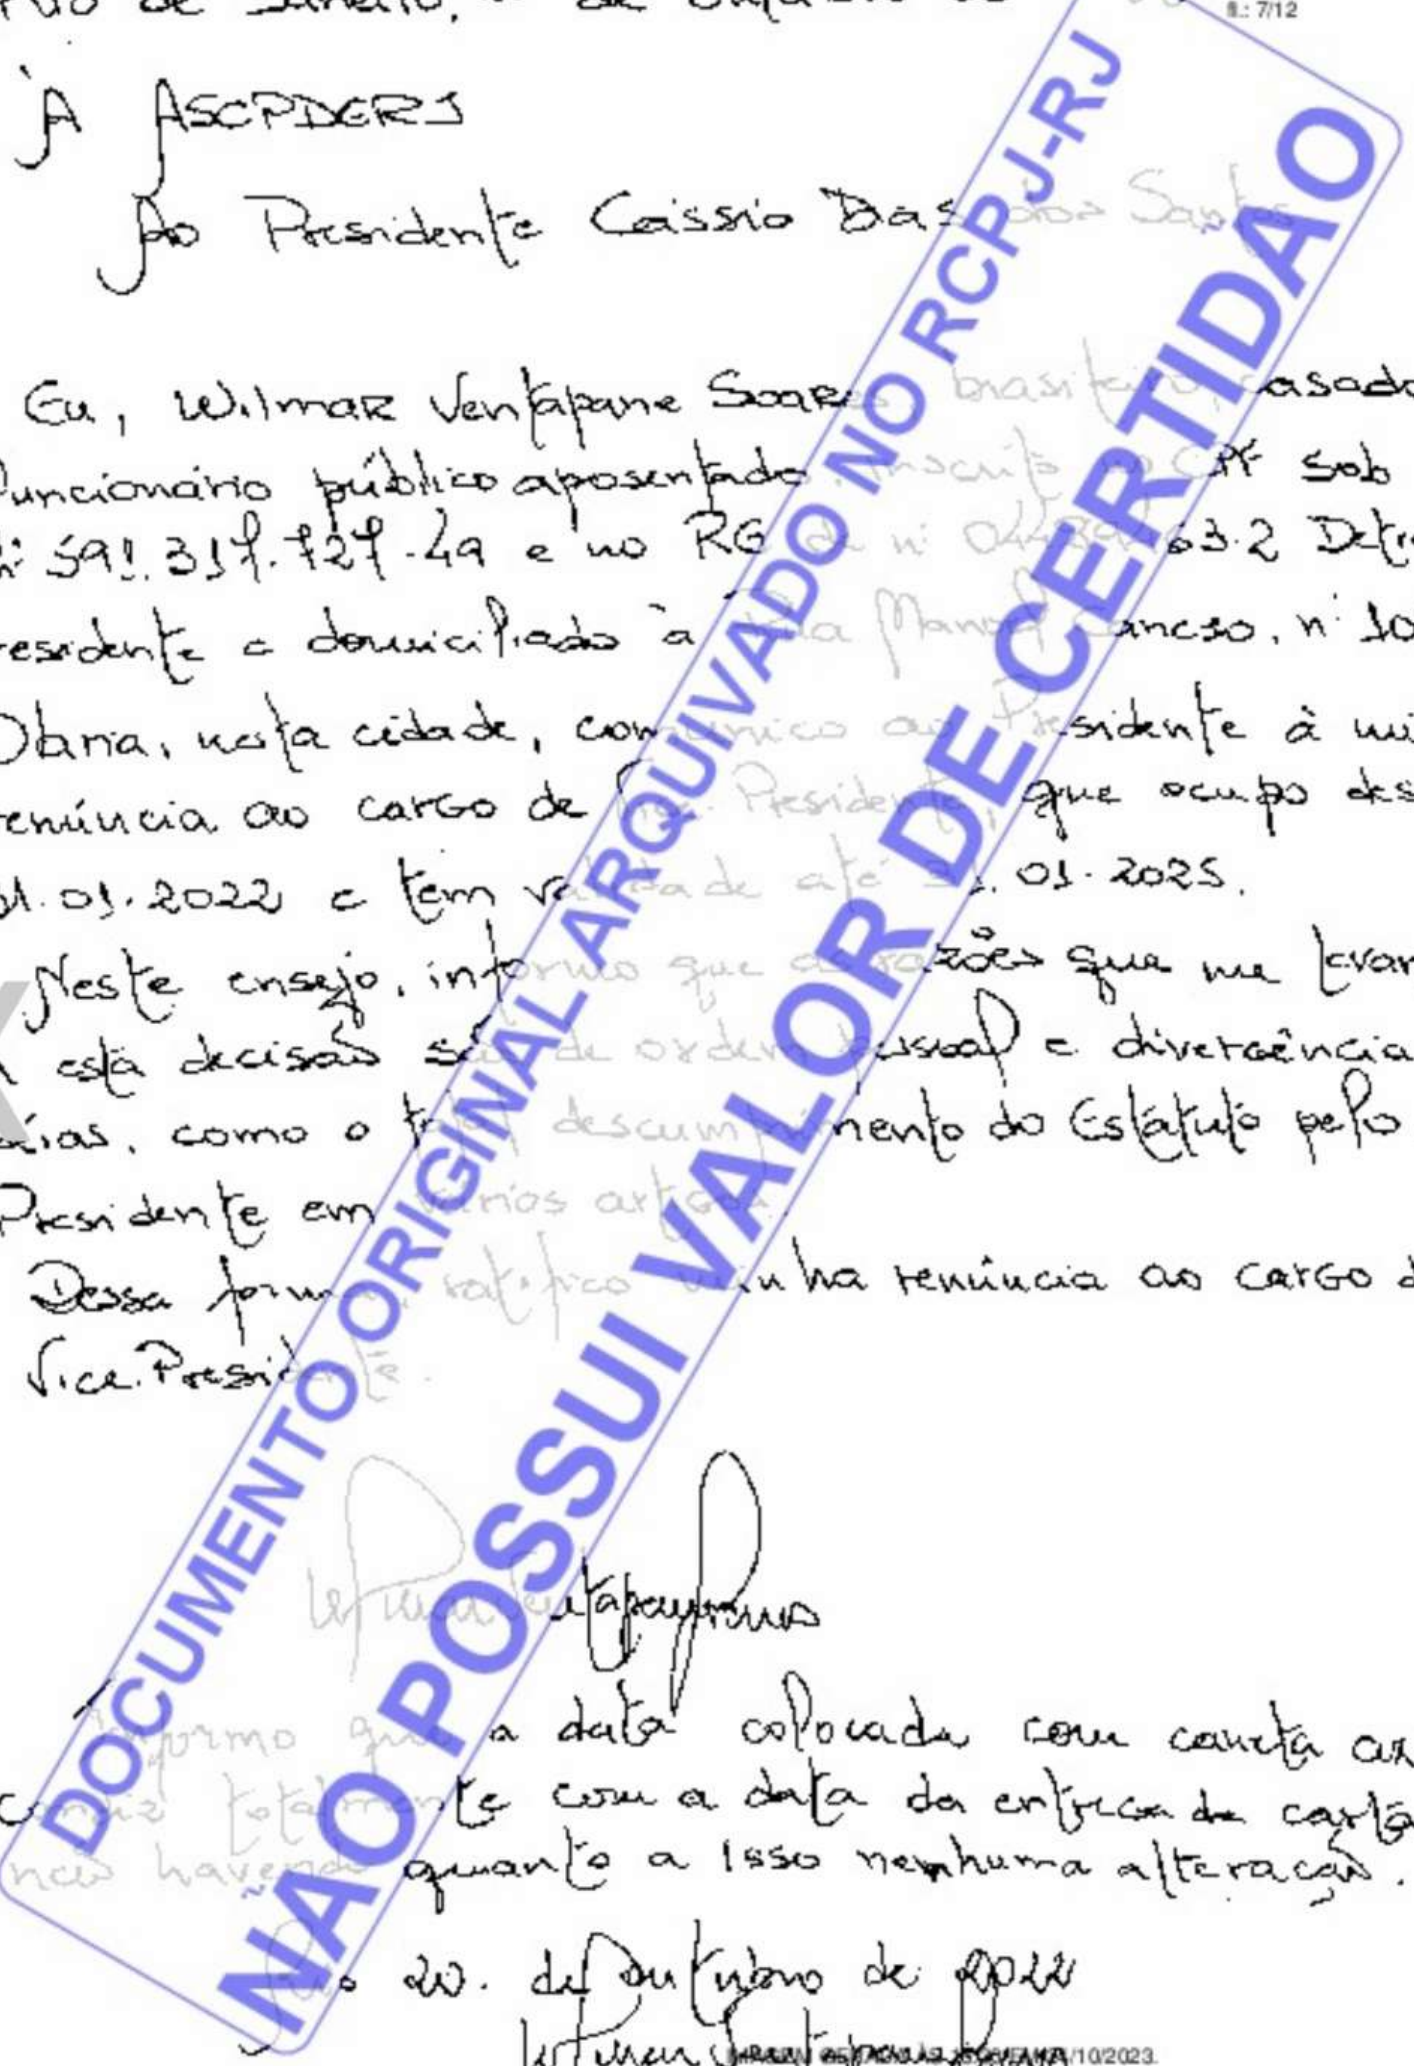 Rio de Janeiro, de outubro de
fl.: 7/12
À ASCPDERJ
Ao Presidente Cássio Dias dos Santos
Eu, Wilmar Ventapane Soares brasileiro, casado
funcionário público aposentado, inscrito no CPF sob
nº 591.317.727.49 e no RG de nº 63.2
residente e domiciliado à Rua Manoel , nº 10
Olaria, nesta cidade, comunico ao Presidente à mi
renúncia ao cargo de Vice. Presidente, que ocupo des
01.01.2022 e tem validade até 31.01.2025.
Neste ensejo, informo que as razões que me levar
a esta decisão são de ordem pessoal e divergência
árias, como o total descumprimento do Estatuto pelo
Presidente em vários artigos.
Dessa forma, ratifico minha renúncia ao cargo d
Vice.Presidente.
Informo que a data colocada com caneta az
condiz totalmente com a data da entrega da carta
não havendo quanto a isso nenhuma alteração.
Rio 20. de Outubro de 2022
DOCUMENTO ORIGINAL ARQUIVADO NO RCPJ-RJ
NÃO POSSUI VALOR DE CERTIDÃO
/10/2023.